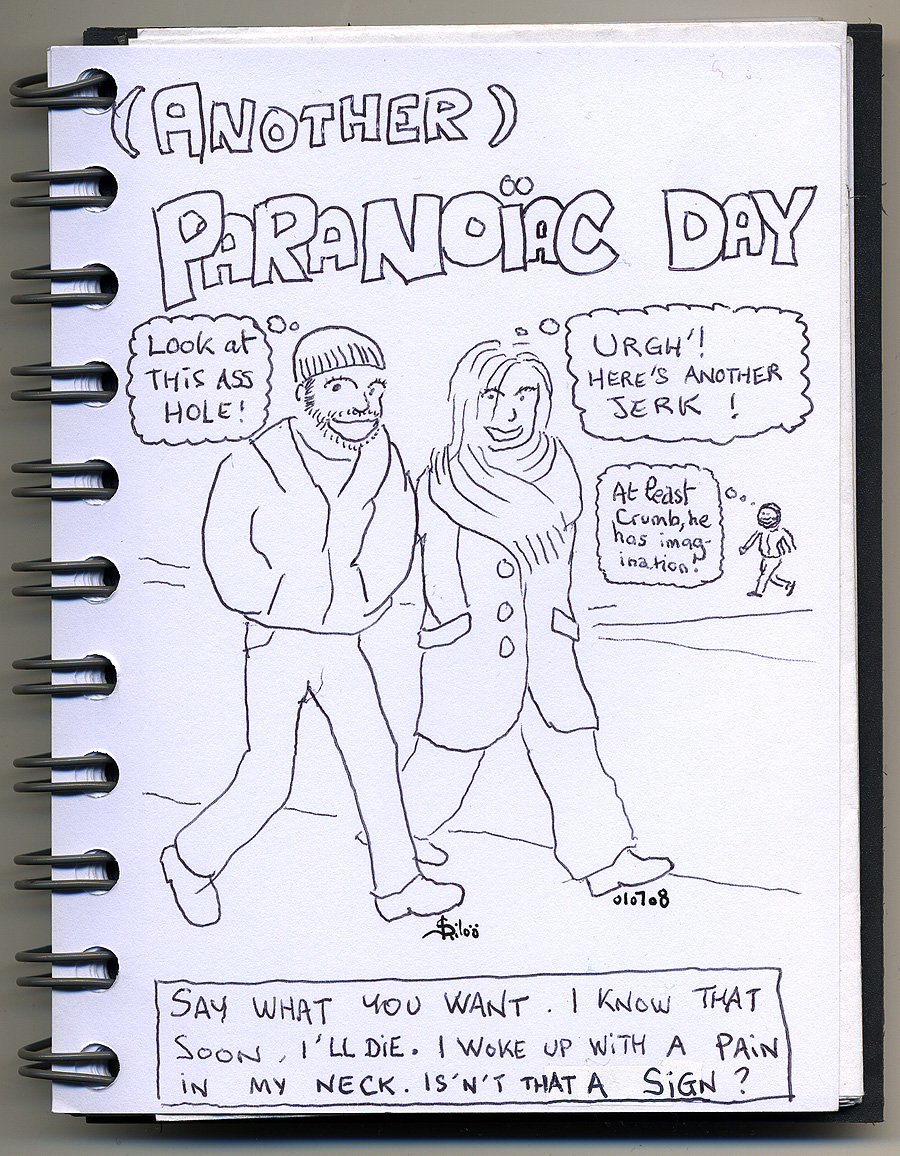 (ANOTHER)
PARANOÏAC DAY
LOOK at
THIS ASS
HOLE!
URGH'!
HERE'S ANOTHER
JERK !
At least
Crumb, he
has imag-
ination!
010708
SAY WHAT YOU WANT. I KNOW THAT
SOON, I'LL DIE. I WOKE UP WITH A PAIN
IN MY NECK. IS'N'T THAT A SIGN ?